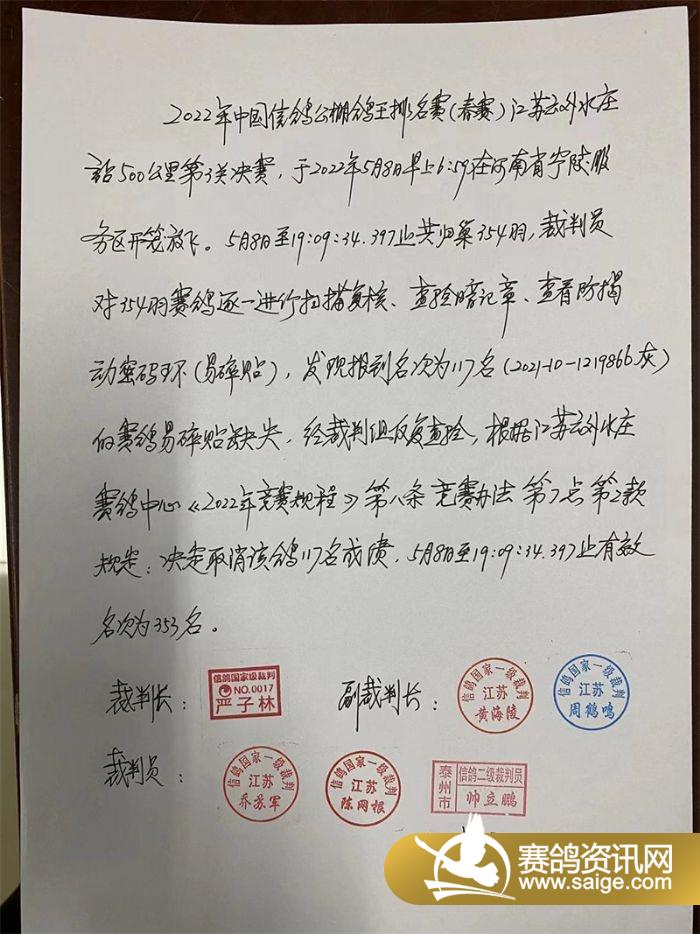 2022年中国信鸽公棚鸽王排名赛(春赛)江苏云外水庄
站500公里第3关决赛,于2022年5月8日早上6:59在河南省宁陵服
务区开笼放飞。5月8日至19:09:34.397止共归巢354羽,裁判员
对354羽赛鸽逐一进行扫描复核、查验暗记章、查看防揭
动密码环(易碎贴),发现报到名次为117名(2021-10-1219866.灰)
的赛鸽易碎贴缺失,经裁判组反复查验,根据江苏云外水庄
赛鸽中心《2022年竞赛规程》第八条 竞赛办法 第7点 第2款
规定:决定取消该鸽117名成绩,5月8日至19:09:34.397止有效
名次为353名。
裁判长: 信鸽国家级裁判 NO.0017 严子林 副裁判长: 信鸽国家一级裁判 江苏 黄海陵 信鸽国家一级裁判 江苏 周鹤鸣
裁判员: 信鸽国家一级裁判 江苏 乔苏军 信鸽国家一级裁判 江苏 陈网根 泰州市 信鸽二级裁判员 帅立鹏
赛鸽资讯网
www.saige.com